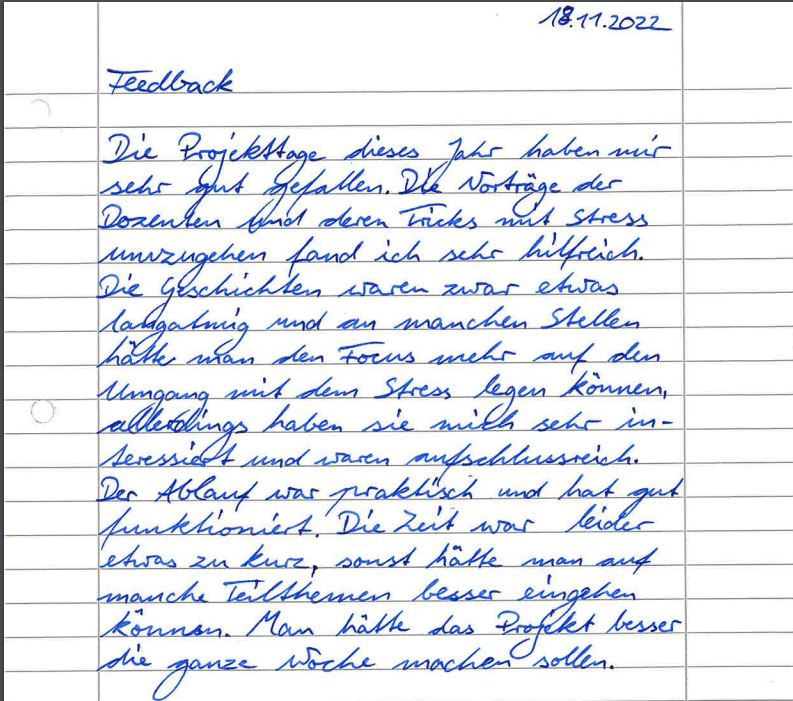 18.11.2022
Feedback
Die Projekttage dieses Jahr haben mir
sehr gut gefallen. Die Vorträge der
Dozenten und deren Tricks mit Stress
umzugehen fand ich sehr hilfreich.
Die Geschichten waren zwar etwas
langatmig und an manchen Stellen
hätte man den Focus mehr auf den
Umgang mit dem Stress legen können,
allerdings haben sie mich sehr in-
teressiert und waren aufschlussreich.
Der Ablauf war praktisch und hat gut
funktioniert. Die Zeit war leider
etwas zu kurz, sonst hätte man auf
manche Teilthemen besser eingehen
können. Man hätte das Projekt besser
die ganze Woche machen sollen.